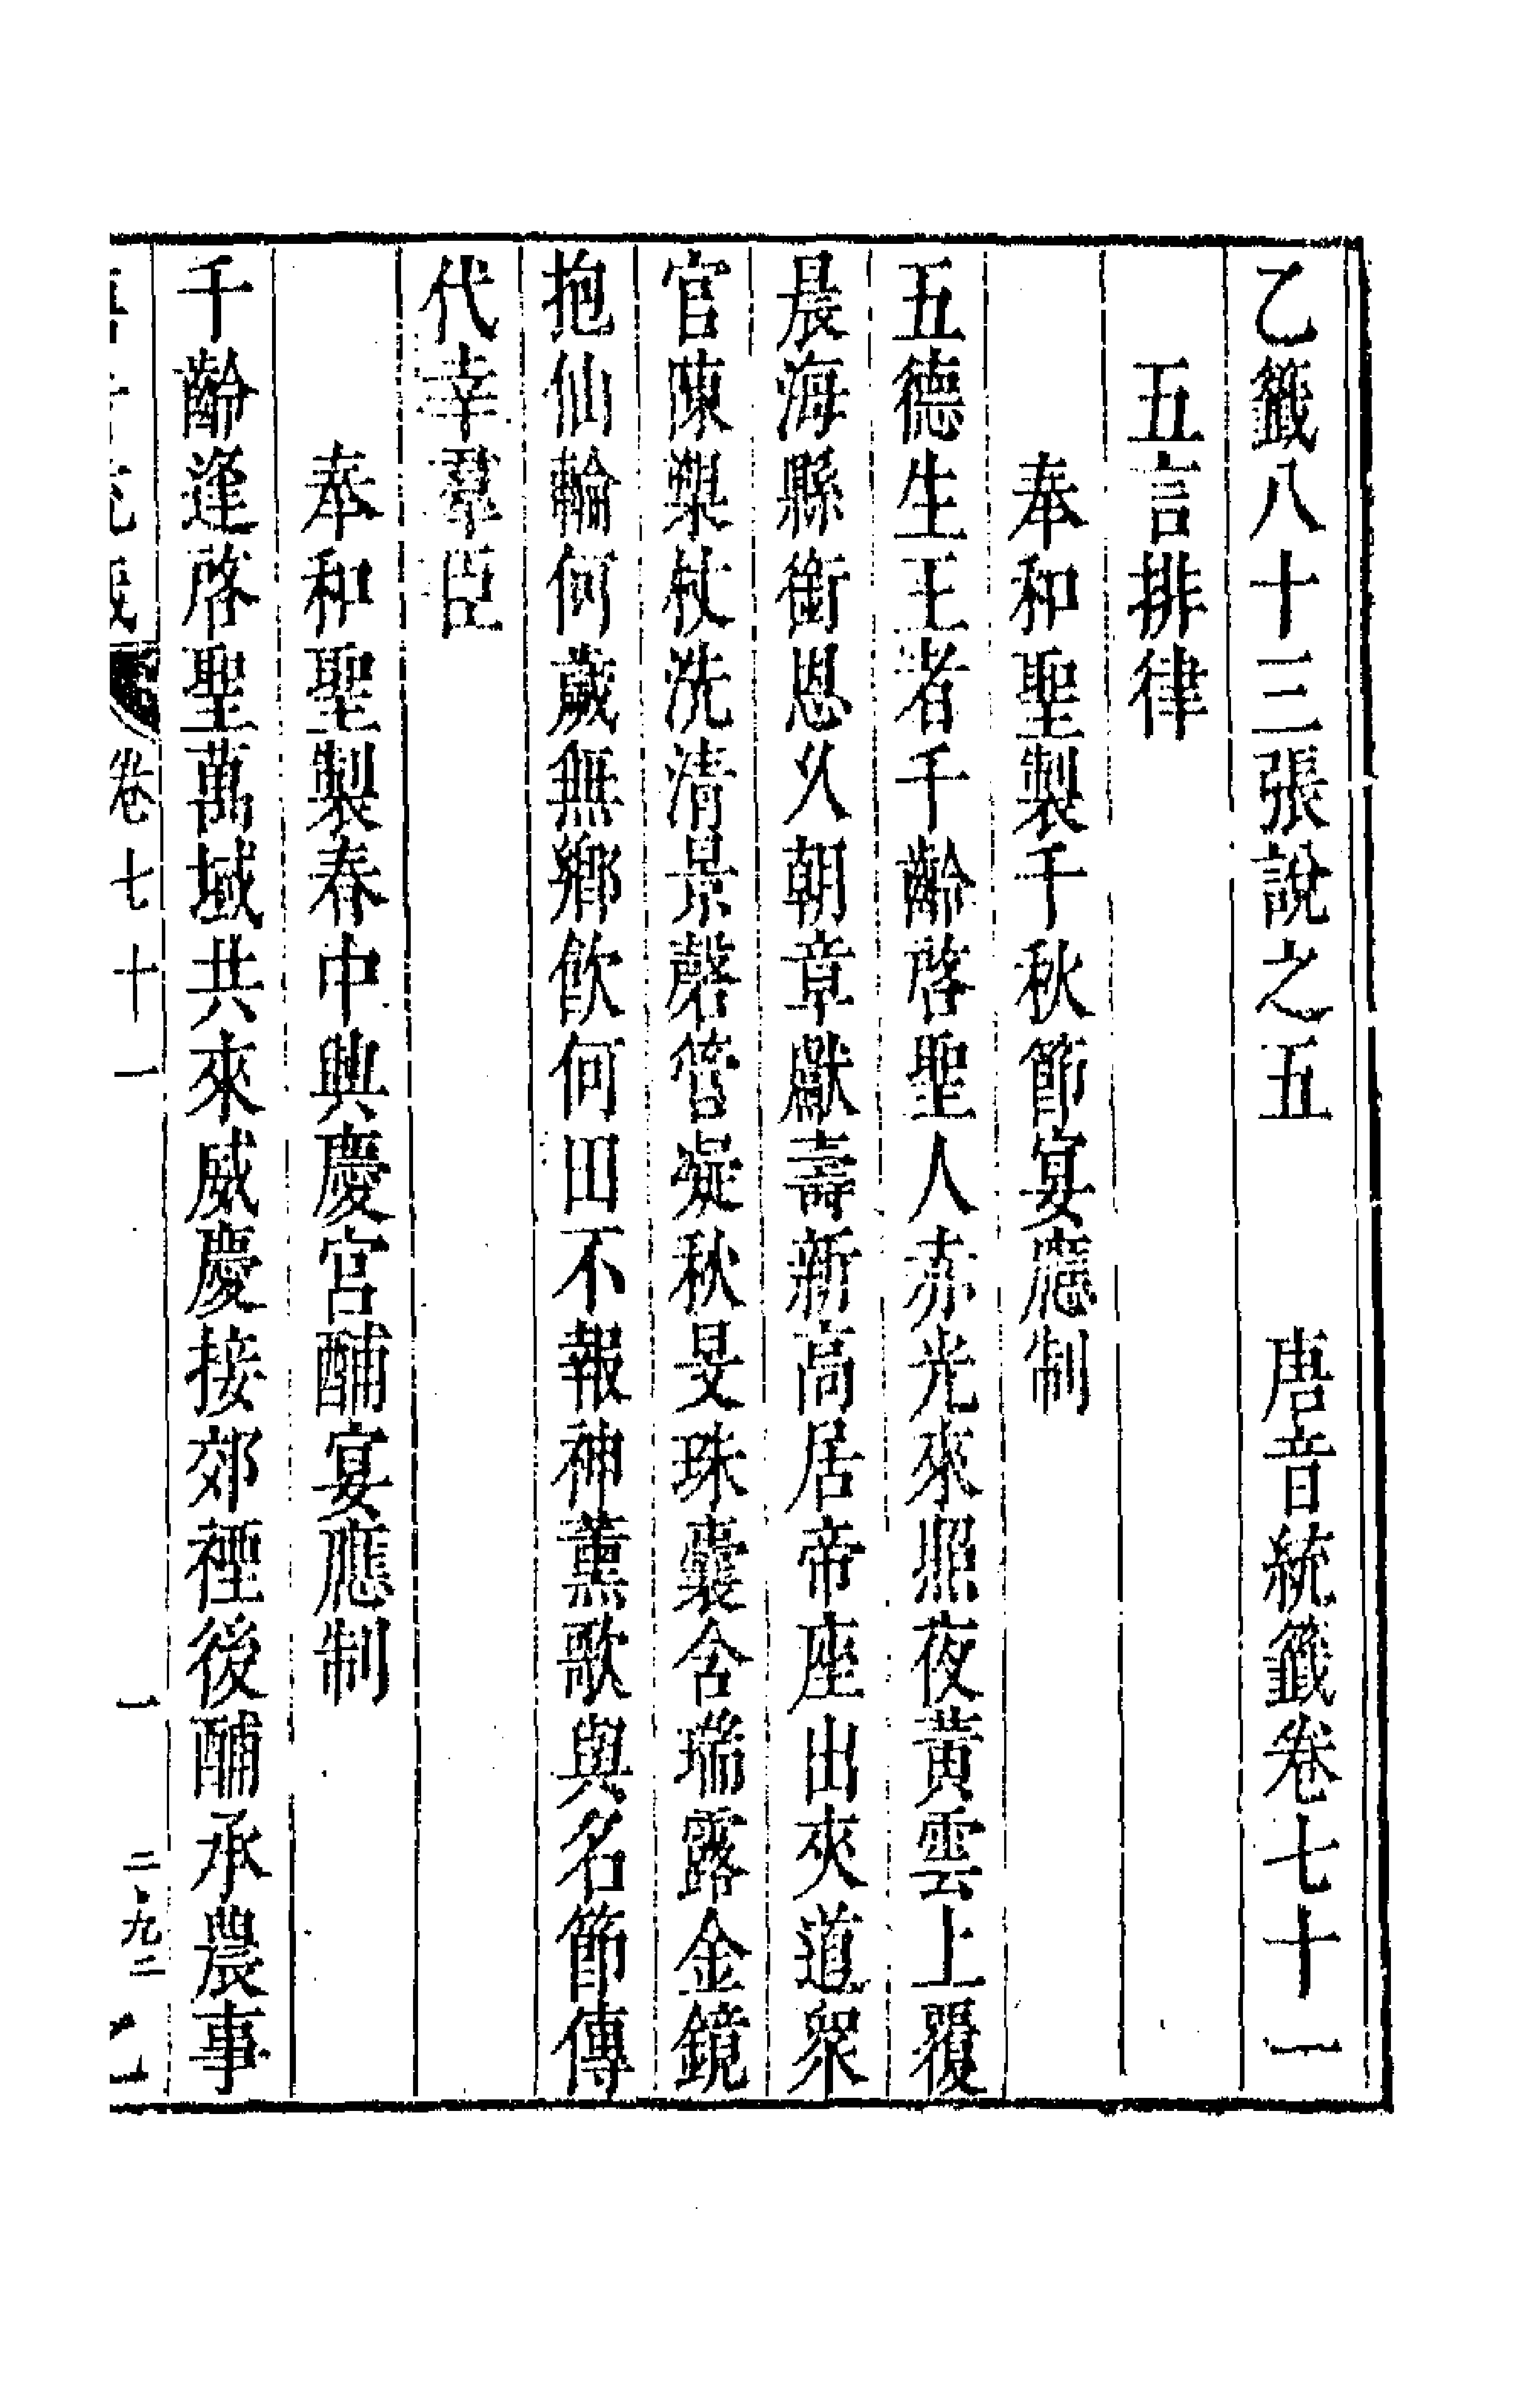 乙籤八十三張說之五　唐音統籤卷七十一
五言排律
奉和聖製千秋節宴應制
五德生王者千齡啓聖人赤光來照夜黃雲上覆
晨海縣銜恩久朝章獻壽新高居帝座出夾道衆
官陳槊杖洗清景磬管凝秋旻珠囊含瑞露金鏡
抱仙輪何歲無鄉飲何田不報神薰歌與名節傳
代幸羣臣
奉和聖製春中興慶宮酺宴應制
千齡逢啓聖萬域共來威慶接郊禋後酺承農事
卷七十一
一
二九二